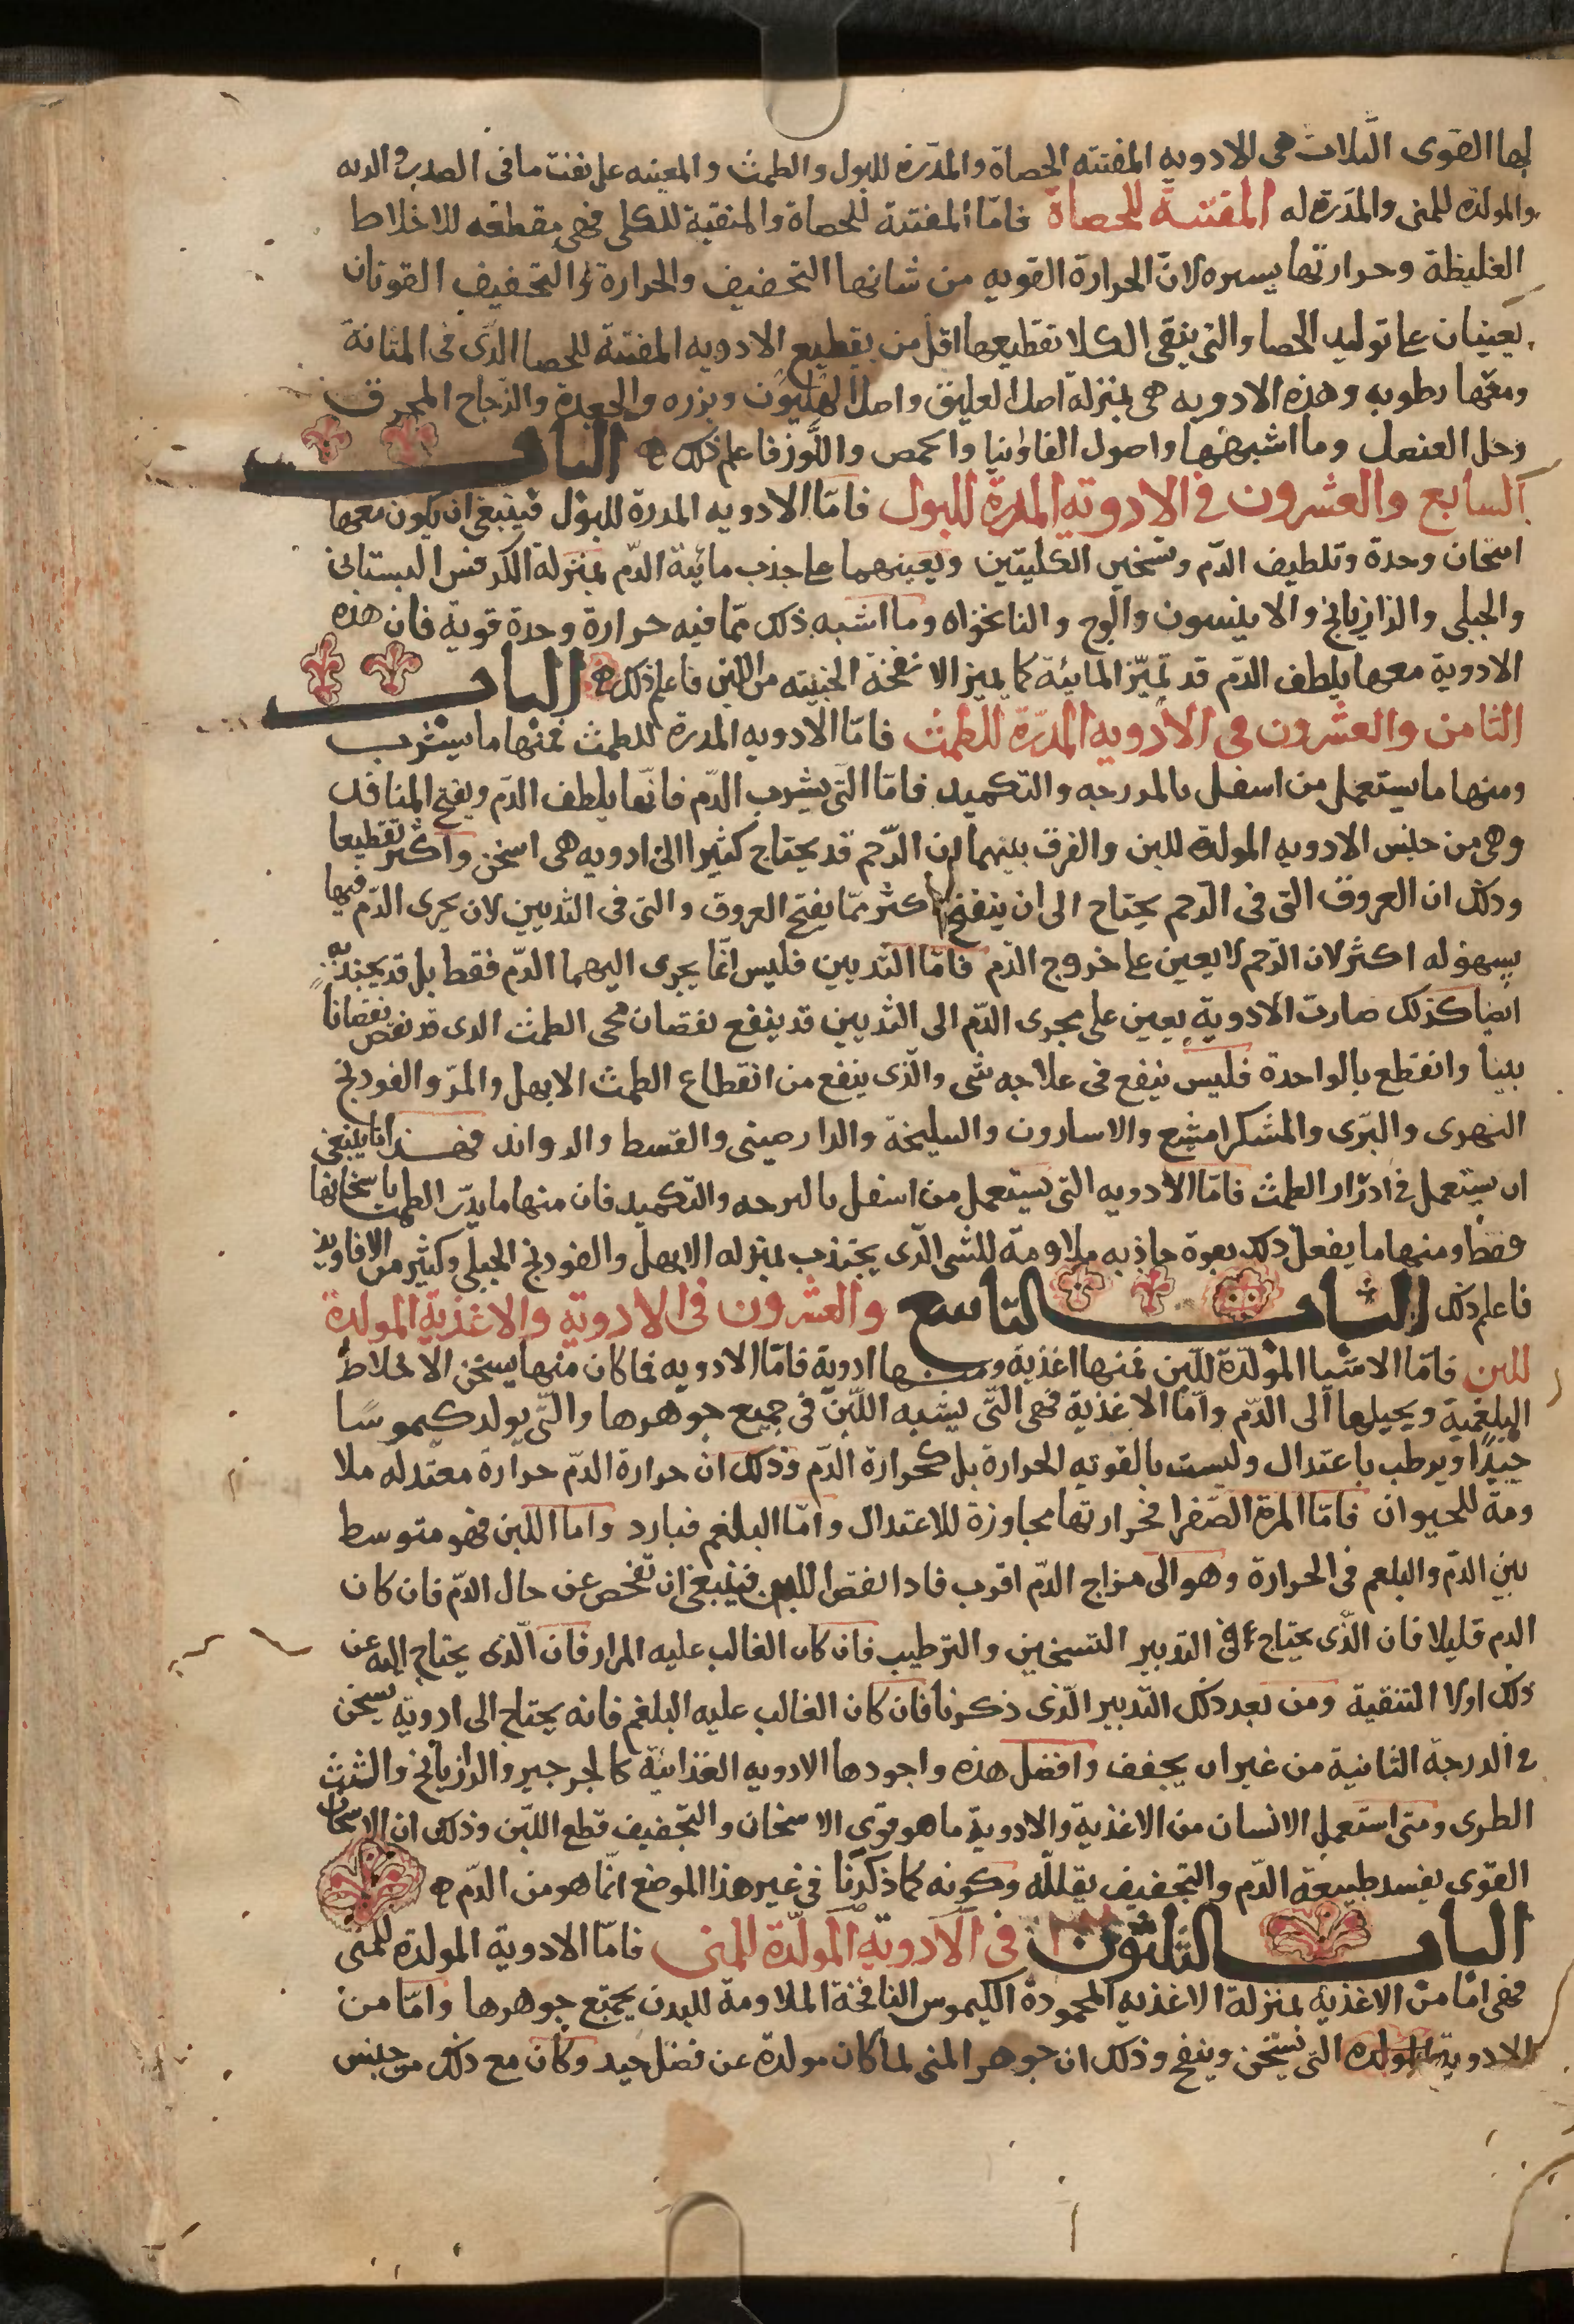 لها القوى الثلاث هى الادويه المفتته الحصاة والمدره للبول والطمث والمعينه على نفث ما فى الصدر والريه
والمولدة للمنى والمدرة له المفتتة للحصاة فامّا المفتتة للحصاة والمنقية للكلى فهى مقطعه للاخلاط
الغليظة وحرارتها يسيره لانّ الحرارة القويه من شانها التجفيف والحرارة والتجفيف القوتان
يعينان على توليد الحصا والتى ينقى الكلا تقطيعها اقل من تقطيع الادويه المفتتة للحصا الذى فى المثانة
ومعها رطوبه وهذه الادويه هى بمنزلة اصل العليق واصل الهليون وبزره والجعدة والزجاج المحرق
وخل العنصل وما اشبهها واصول الفاوانيا والحمص واللوز فاعلم ذلك ه الباب
السابع والعشرون فى الادوية المدرة للبول فامّا الادويه المدرة للبول فينبغى ان يكون معها
اسخان وحدة وتلطيف الدّم وتسخين الكليتين ويعينهما على جذب مائية الدّم بمنزلة الكرفس البستانى
والجبلى والرازيانج والانيسون والوج والنانخواه وما اشبه ذلك ممّا فيه حرارة وحدة قوية فان هذه
الادوية معها يلطف الدّم قد تميّز المائية كما يميز الانفخة الجبنيه من اللبن فاعلم ذلك ه الباب
الثامن والعشرون فى الادويه المدرّة للطمث فامّا الادويه المدرة للطمث فمنها ما يشرب
ومنها ما يستعمل من اسفل بالمررجه والتكميد فامّا التى يشرب الدّم فانّها يلطف الدّم ويفتح المنافذ
وهى من جنس الادويه المولدة للبن والفرق بينهما لان الرّحم قد يحتاج كثيرا الى ادويه هى اسخن واكثر تقطيعا
وذلك ان العروق التى فى الرحم يحتاج الى ان ينفتح اكثر ممّا يفتح العروق والتى فى الثديين لان يجرى الدّم فيها
بسهوله اكثر لان الرّحم لا يعين على خروج الدّم فامّا الثديين فليس انّما يجرى اليهما الدّم فقط بل قد يجذبه
ايضا كذلك صارت الادوية يعين على مجرى الدّم الى الثديين قد ينفع نقصان مجى الطمث الدى قد نقص نقصانا
بينا وانقطع بالواحدة فليس ينفع فى علاجه شى والّذى ينفع من انقطاع الطمث الابهل والمرّ والفودنج
النهرى والبرّى والمشكرامشيع والاسارون والسليخة والدارصينى والقسط والدواند فهذا ما ينبغى
ان يستعمل فى ادرار الطمث فامّا الادويه التى يستعمل من اسفل بالمرحه والتكميد فان منها ما يدرّ الطمث باسخانها
فقط ومنها ما يفعل ذلك بقوة جاذبه ملاومة للشى الّذى يجتذب بمنزله الابهل والفودنج الجبلى وكثير من الافاويه
فاعلم ذلك الباب التاسع والعشرون فى الادوية والاغذية المولدة
للبن فامّا الاشيا المولّدة للّبن فمنها اغذية ومنها ادوية فامّا الادويه فما كان منها يسخن الاخلاط
البلغمية ويحيلها الى الدّم وامّا الاغذية فهى التّى يشبه اللّبن فى جميع جوهرها والتّى يولد كيموسًا
جيّدًا ويرطب باعتدال وليست بالقوته الحرارة بل كحرارة الدّم وذلك ان حرارة الدّم حرارة معتدله ملا
ومة للحيوان فامّا المرة الصّفرا فحرارتها مجاوزة للاعتدال وامّا البلغم فبارد واما اللبن فهو متوسط
بين الدّم والبلغم فى الحرارة وهو الى مزاج الدّم اقرب فاذا نقص اللبن فينبغى ان تفحص عن حال الدّم فان كان
الدم قليلا فان الذّى يحتاج فى التدبير التسخين والترطيب فان كان الغالب عليه المرار فان الّذى يحتاج اليه عن
ذلك اولا التنقية ومن بعد ذلك التدبير الّذى ذكرنا فان كان الغالب عليه البلغم فانه يحتاج الى ادوية يسخن
فى الدرجة الثانية من غير ان يجفف وافضل هذه واجودها الادويه الغذائية كالجرجير والرازيانج والشبث
الطرى ومتى استعمل الانسان من الاغذية والادوية ما هو قوى الاسخان والتجفيف قطع اللّبن وذلك ان الاسخان
القوى يفسد طبيعة الدّم والتجفيف يقلله وكونه كما ذكرنا فى غير هذا الموضع انّما هو من الدّم ه
الباب الثلثون فى الادوية المولّدة للمنى فامّا الادوية المولدة للمنى
فهى امّا من الاغذية بمنزلة الاغذيه المحمودة الكيموس النافخة الملاومة للبدن بجميع جوهرها وامّا من
الادوية المولده التى تسخن وينفخ وذلك ان جوهر المنى لما كان مولدة عن فضل جيد وكان مع ذلك من جنس